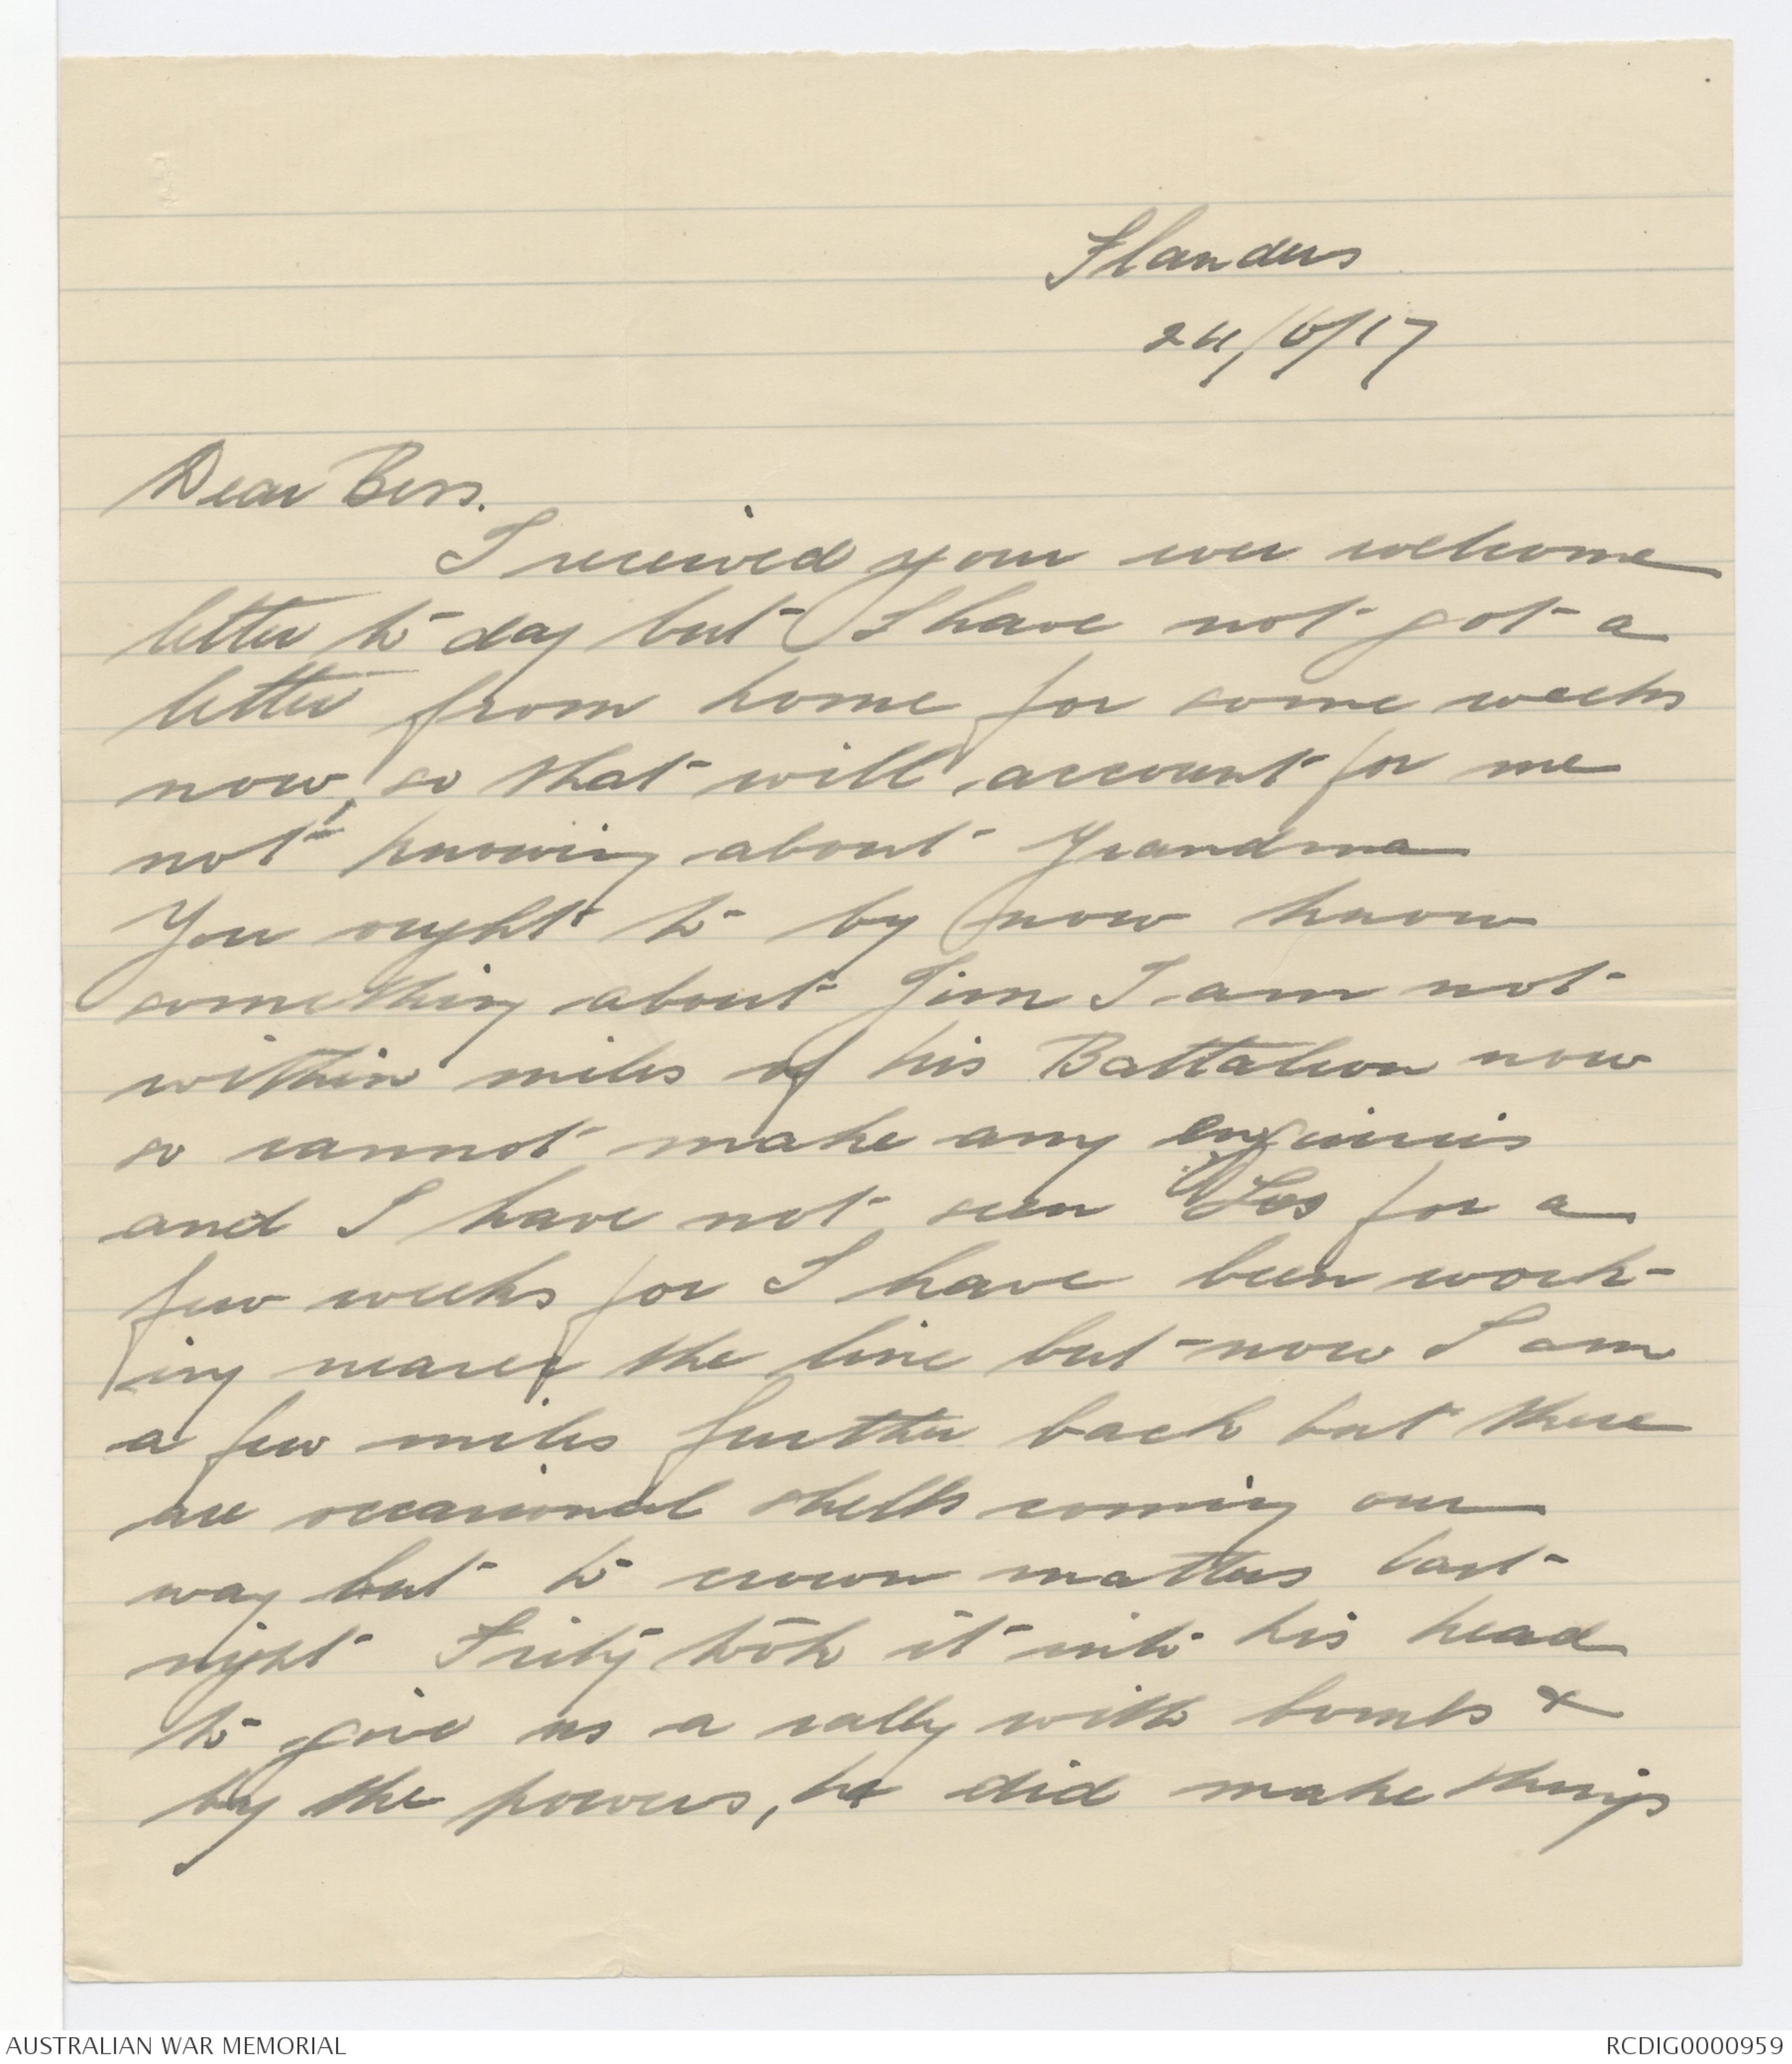 Flanders
24/6/17
Dear Bess.
I received your ever welcome
letter to day but I have not got a
letter from home for some weeks
now, so that will account for me
not knowing about Grandma
You ought to by now know
something about Jim I am not
within miles of his Battalion now
so cannot make any enquiries
and I have not seen Les for a
few weeks for I have been work-
ing nearer the line but now I am
a few miles further back but there
are occasional shells coming our
way but to crown matters last
night Fritz took it into his head
to give us a rally with bombs &
by the powers, he did make things
AUSTRALIAN WAR MEMORIAL
RCDIG0000959